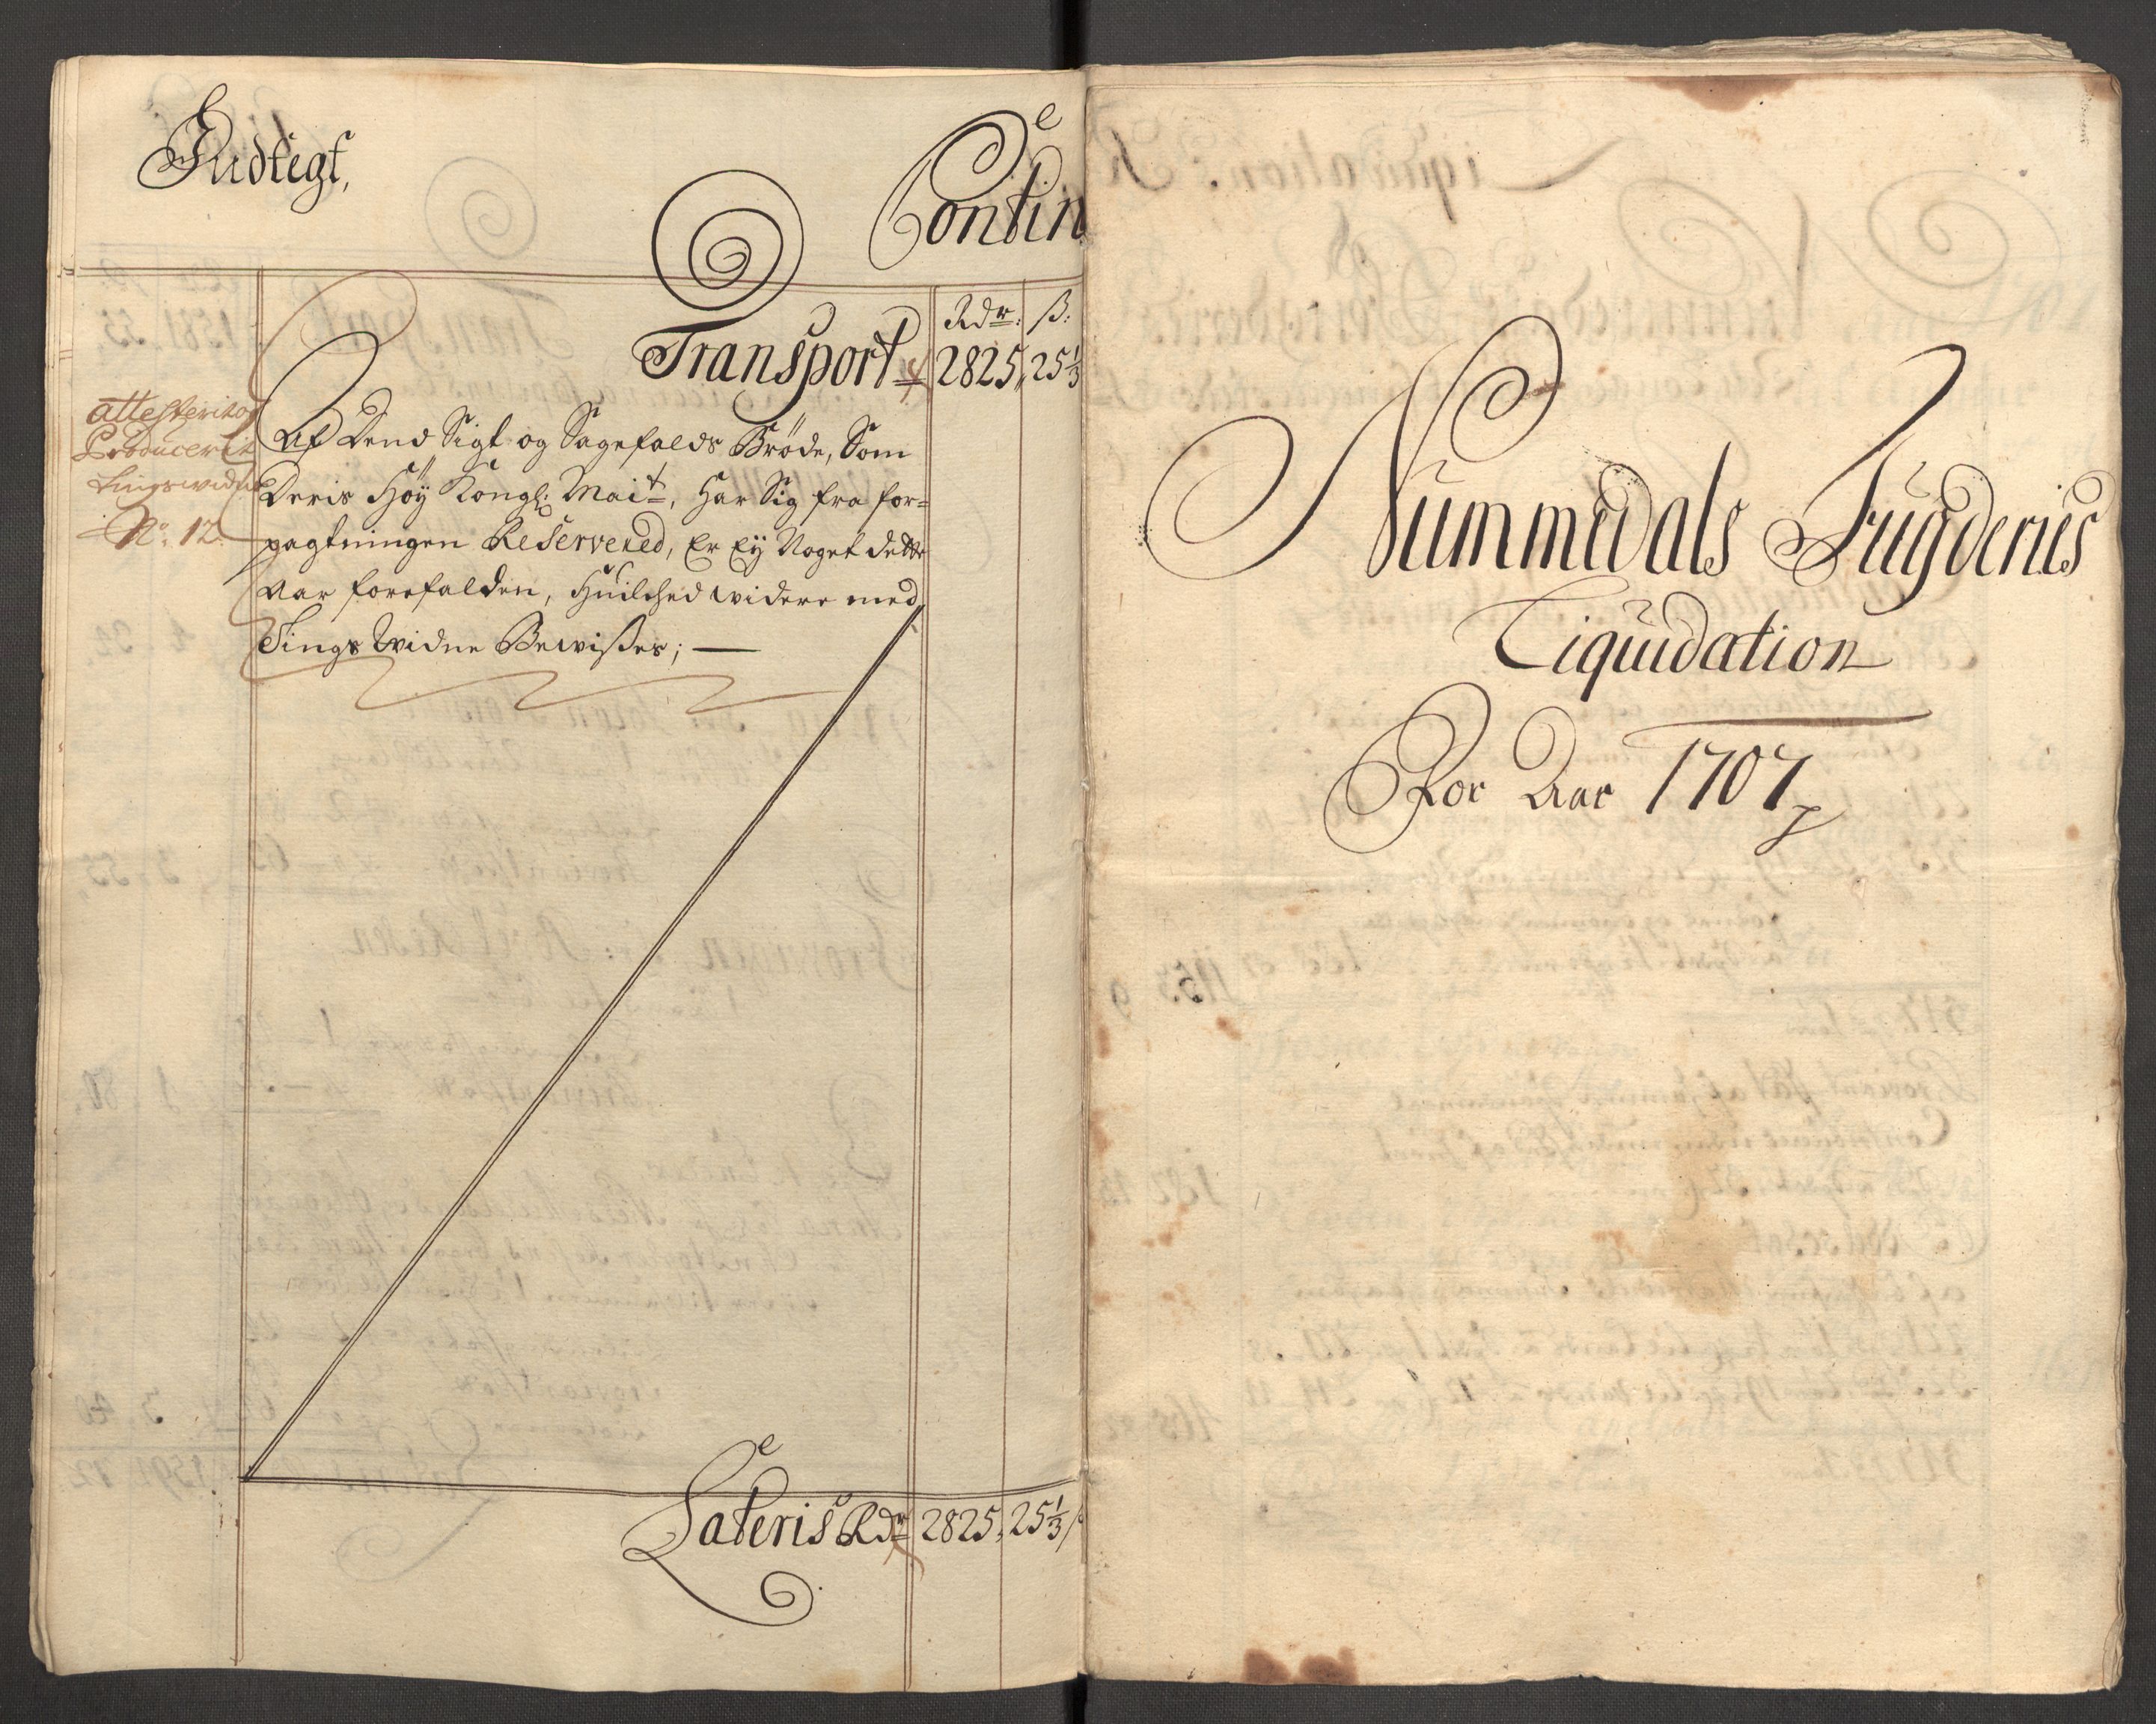 Indtegt,
Contin
Rdr: ß:
Transport 2825, 25⅓
attesterit og
Producerit
tingswidne
No. 12.
Af Dend Sigt og Sagefalds Brøde, Som
Deris Høÿ Kongl: Maitt, Har Sig fra for=
pagtningen Reservered, Er Eÿ Noget dette
Aar forefalden, Huilched widere med
Tings Widne Bewißes; —
Lateris Rdr 2825, 25⅓ ß
Nummedals Fugderies
Liquidation
For Aar 1707